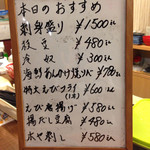 本日のおすすめ
刺身盛り ¥1,500
枝豆 ¥480
冷奴 ¥300
海鮮あんかけ焼そば ¥780
特大えびフライ(1本) ¥600
えび唐揚げ ¥580
揚げだし豆腐 ¥480
ホヤ刺し ¥580